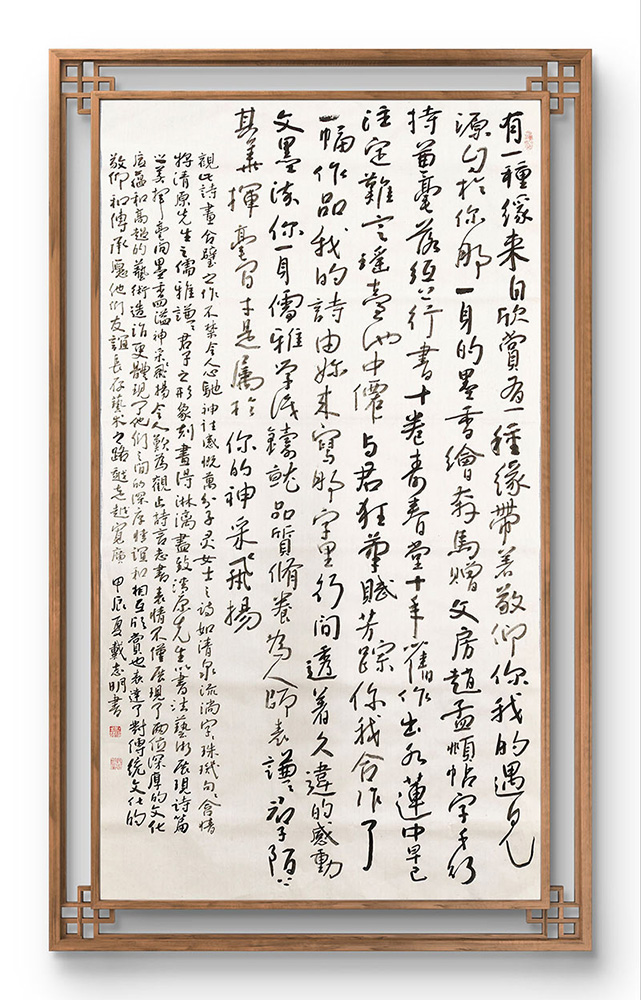 有一種緣來自欣賞有一種緣帶著敬仰你我的遇見
源自於你那一身的墨香繪奔馬贈文房趙孟頫帖字千行
持笛毫落紙上行書十卷壽春堂十年舊作出水蓮中早已
注定難言瑤臺池中僊與君狂草賦芳蹤你我合作了
一幅作品我的詩由妳來寫那字里行間透着久違的感動
文墨染你一身儒雅学識鑄就品質脩養為人師表謙謙君子陌上
其華揮毫間才是屬於你的神采飛揚
觀此詩畫合璧之作不禁令人心馳神往感慨萬分子灵女士之詩如清泉流淌字字珠璣句句含情
將清原先生之儒雅謙謙君子之形象刻畫得淋漓盡致清原先生以書法藝術展現詩篇
之美揮毫间墨香四溢神采飛揚令人歎為觀止詩言志書表情不僅展現了兩位深厚的文化
底蘊和高超的藝術造诣更體現了他们之間的深厚情谊和相互欣賞也表達了對傳統文化的
敬仰和傳承願他們友誼長存藝术之路越走越寬廣 甲辰夏戴志明書